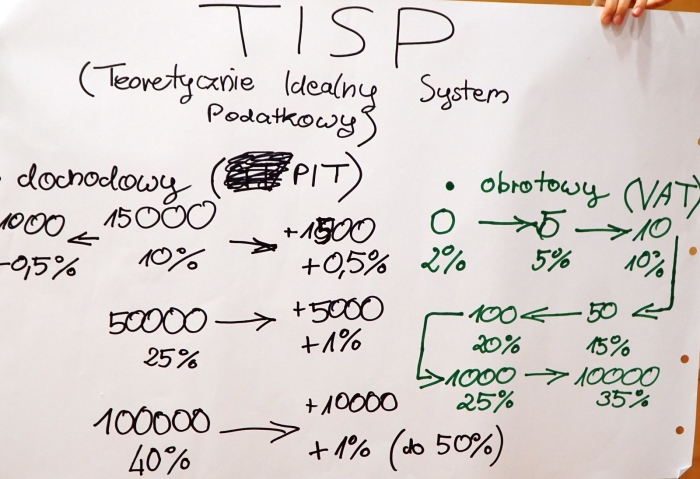 TISP
(Teoretycznie Idealny System
Podatkowy)
dochodowy (PIT)
1000 ← 15000 → +1500
-0,5% 10% +0,5%
50000 → +5000
25% +1%
100000 → +10000
40% +1% (do 50%)
• obrotowy (VAT)
0 → 5 → 10
2% 5% 10%
100 ← 50
20% 15%
→ 1000 → 10000
25% 35%